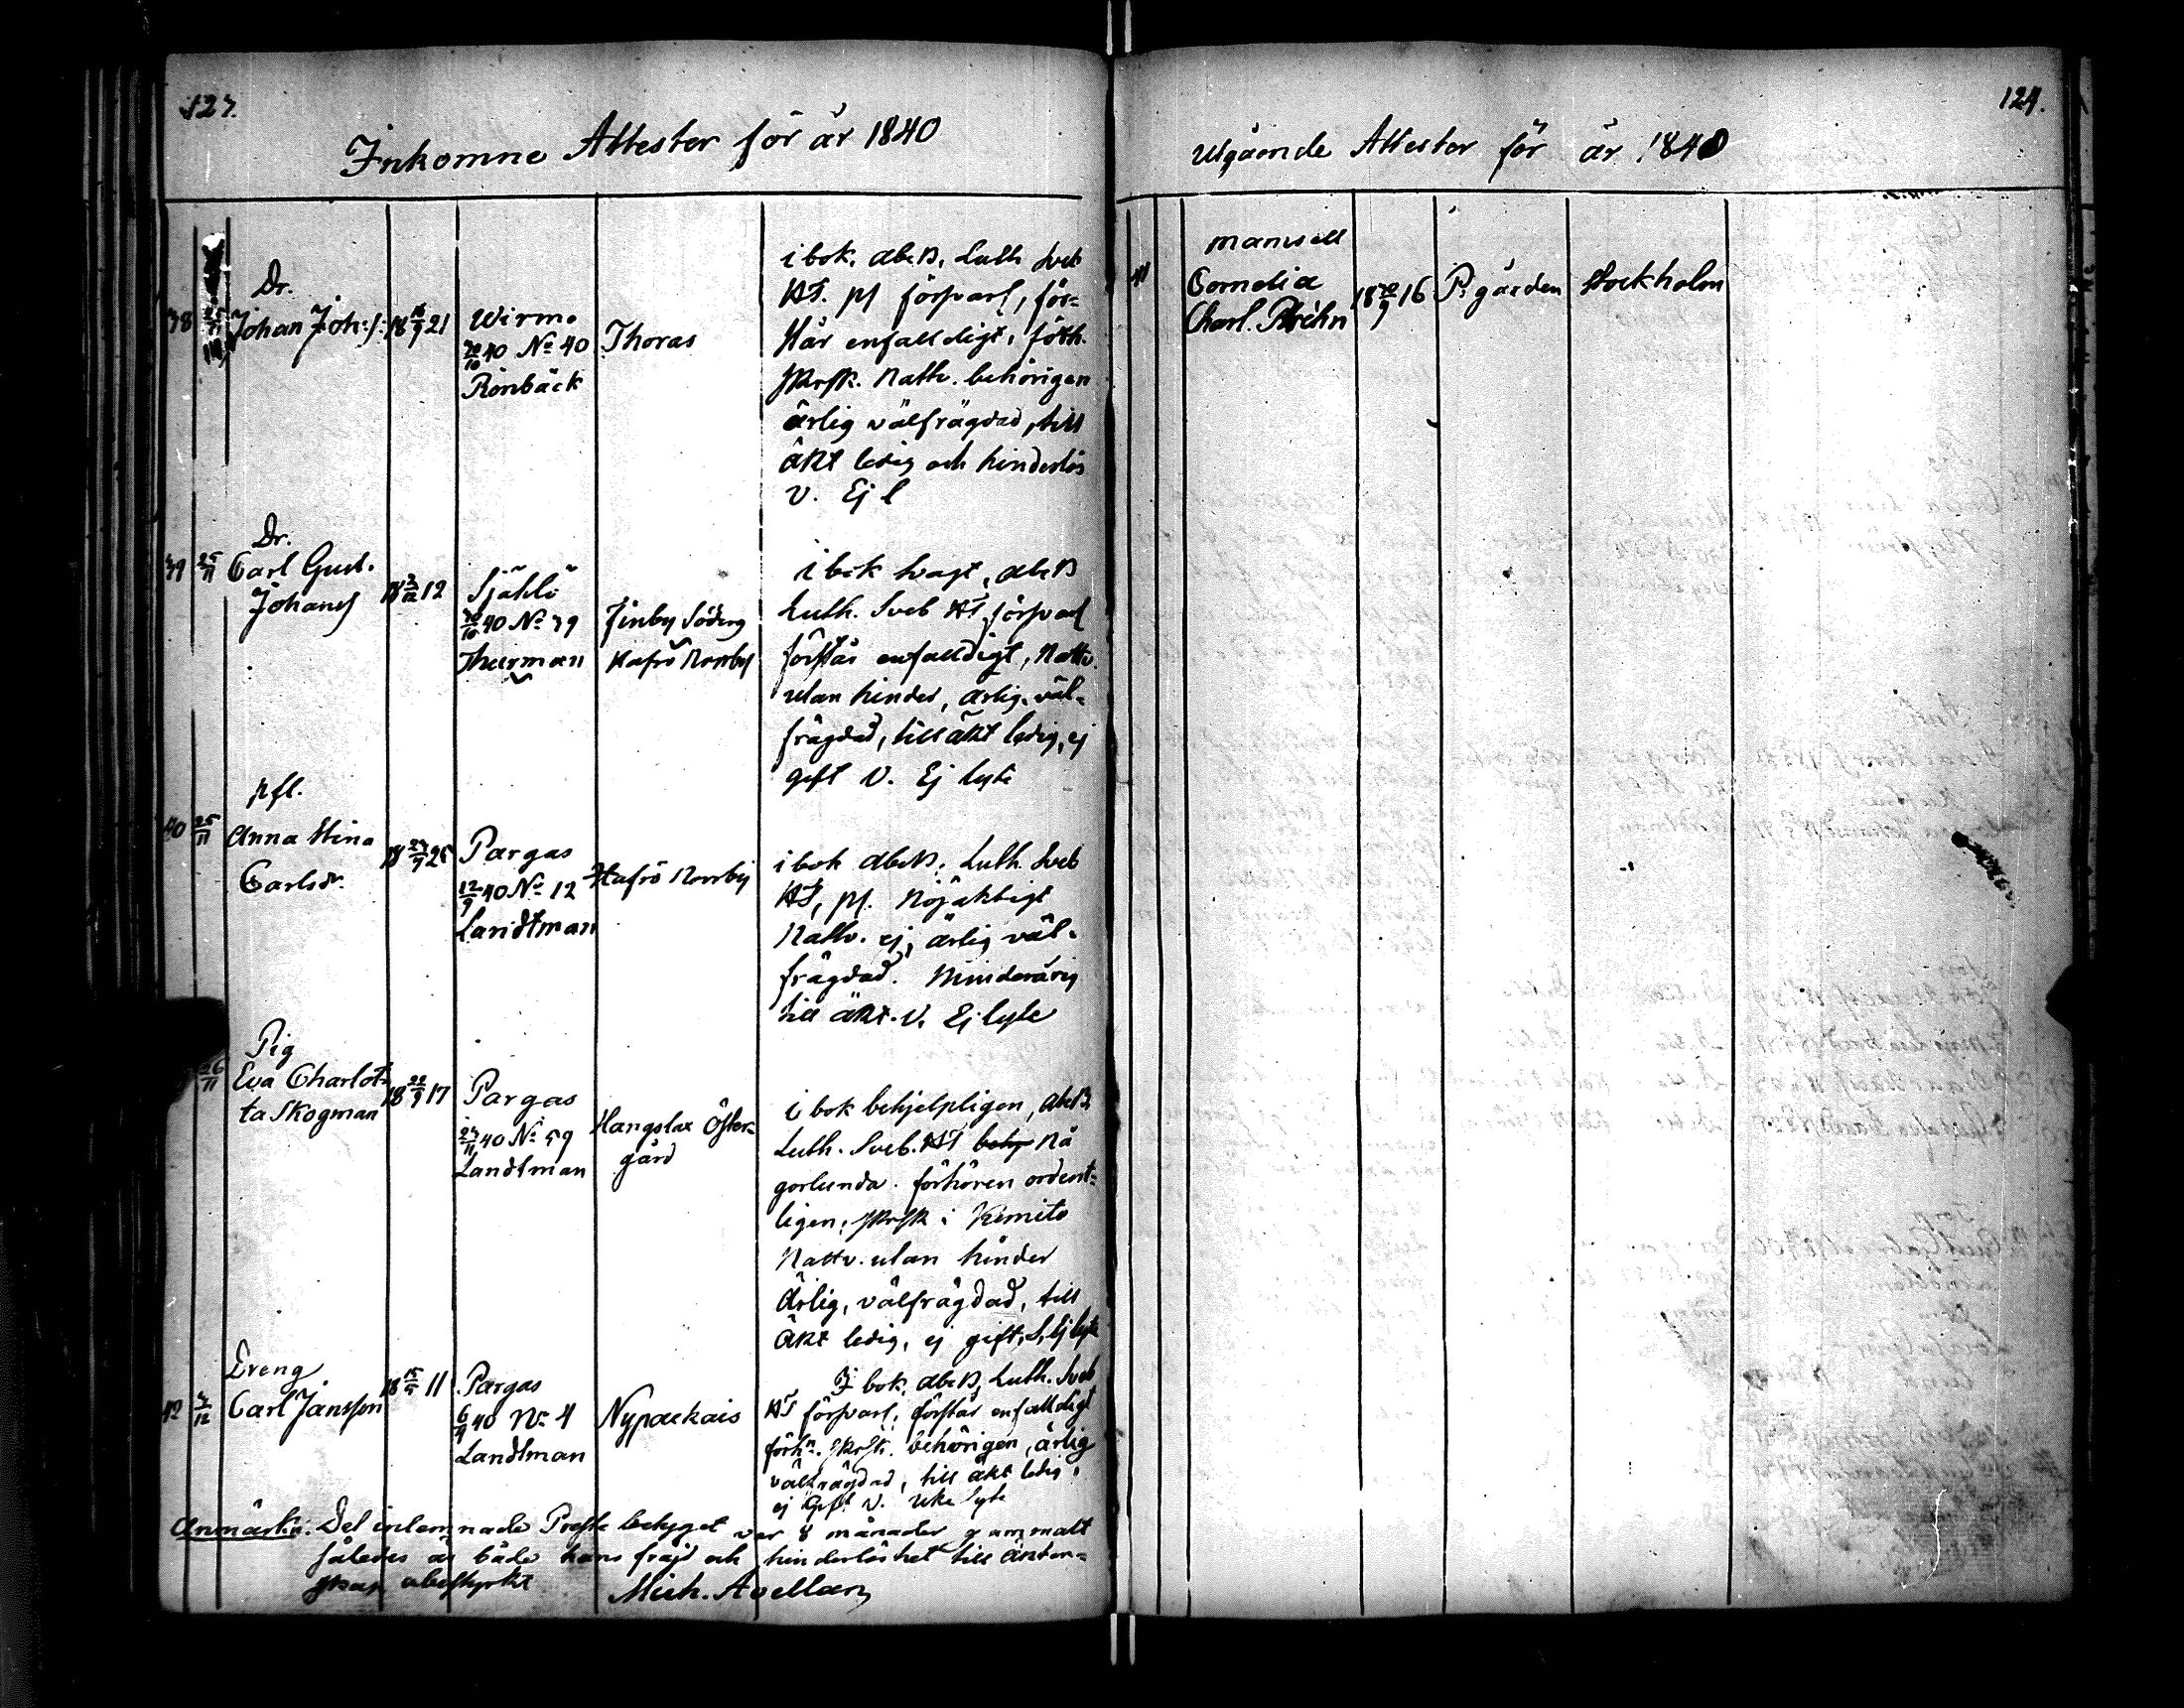 123.
Inkomne Attester för år 1840
38 25/11 Dr.
Johan Joh:s: 18 16/9 21
Wirmo
30/10 40 No 40
Rönbäck
Thoras
i bok, abeB, Luth Sveb
HT. pf försvarl, för=
står enfaldigt, förh.
skrsk. Nattv. behörigen
ärlig välfrägdad, till
äkt ledig och hinderlös
V. Ej l
39 25/11 Dr.
Carl Gust.
Johans
18 3/12 12
Själö
30/10 40 No 39
Thurman
Finby Söderg
Hafrö Norrby
i bok svagt, abeB
Luth. Sveb HT försvarl
förstår enfaldigt, Nattv.
utan hinder, ärlig, väl=
frägdad, till äkt ledig, ej
gift V. Ej lyte
40 25/11 pfl.
Anna Stina
Carlsdr.
18 27/9 25
Pargas
12/9 40 No 12
Landtman
Hafrö Norrby
i bok abeB, Luth. Sveb
HT, pf. Nöjaktigt
Nattv. ej, ärlig väl=
frägdad. Minderårig
till äkt. V. Ej lyte
26/11 Pig
Eva Charlot=
ta Skogman
18 22/9 17
Pargas
23/11 40 No 59
Landtman
Hangslax Öster=
gård
i bok behjelpligen, abeB,
Luth. Sveb. HT behj nå
gorlunda. förhören ordent=
ligen, skrsk i Kimito
Nattv. utan hinder
Ärlig, välfrägdad, till
äkt ledig, ej gift, V, Ej lyte
42 3/12 Dreng
Carl Jansson
18 15/5 11
Pargas
6/4 40 No 4
Landtman
Nypaekais
I bok, abeB, Luth. Sveb
HT försvarl, förstår enfaldigt
förhn. skrsk. behörigen, ärlig
välfrägdad, till äkt ledig,
ej Gift V. Utan lyte
Anmärkn: Det inlemnade Preste betyget var 8 månader gammalt
således är både hans fräjd och hinderlöshet till äkten=
skap obestyrkt
Mich. Avellan
124.
Utgående Attester för år 1840
41
Mamsell
Cornelia
Charl. Préhn
18 30/9 16
P:gården
Stockholm